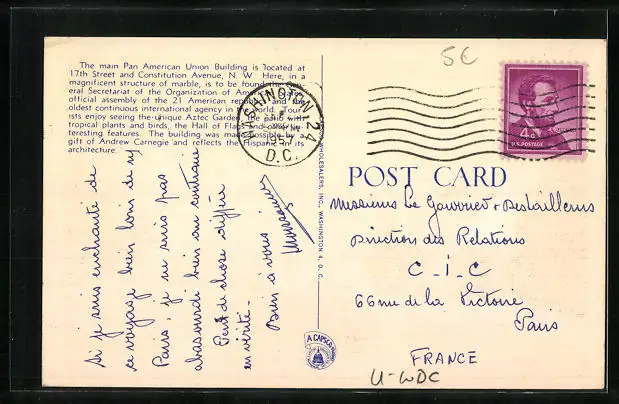 The main Pan American Union Building is located at
17th Street and Constitution Avenue, N. W. Here, in a
magnificent structure of marble, is to be found the Gen-
eral Secretariat of the Organization of American States,
official assembly of the 21 American republics and the
oldest continuous international agency in the world. Tour-
ists enjoy seeing the unique Aztec Garden, the patio with
tropical plants and birds, the Hall of Flags and other in-
teresting features. The building was made possible by a
gift of Andrew Carnegie and reflects the Hispanic in its
architecture.
Si je suis enchanté de
ce voyage bien loin de
Paris, je ne suis pas
abasourdi bien au contraire
Peu de chose diffère
en vérité-
Bien à vous
WHOLESALERS, INC., WASHINGTON 4, D. C.
A CAPSCO
WASHINGTON 24
D.C.
5€
4¢
U.S. POSTAGE
POST CARD
Messieurs Le Gouvrier + Destailleurs
Direction des Relations
C-I-C
66 rue de la Victoire
Paris
FRANCE
U-WDC